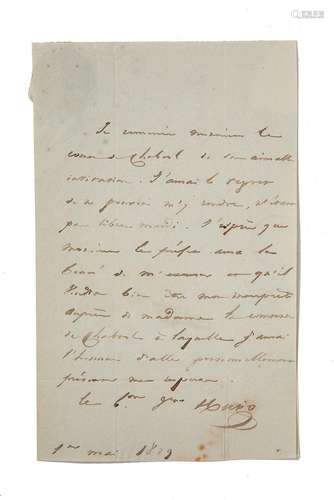 Je remercie monsieur le
comte de Chabrol de son aimable
invitation. J'aurai le regret
de ne pouvoir m'y rendre, n'étant
pas libre mardi. J'espère que
monsieur le préfet aura la
bonté de m'excuser et qu'il
voudra bien être mon interprète
auprès de madame la comtesse
de Chabrol à laquelle j'aurai
l'honneur d'aller personnellement
présenter mes
le gal Hugo
1er mai 18